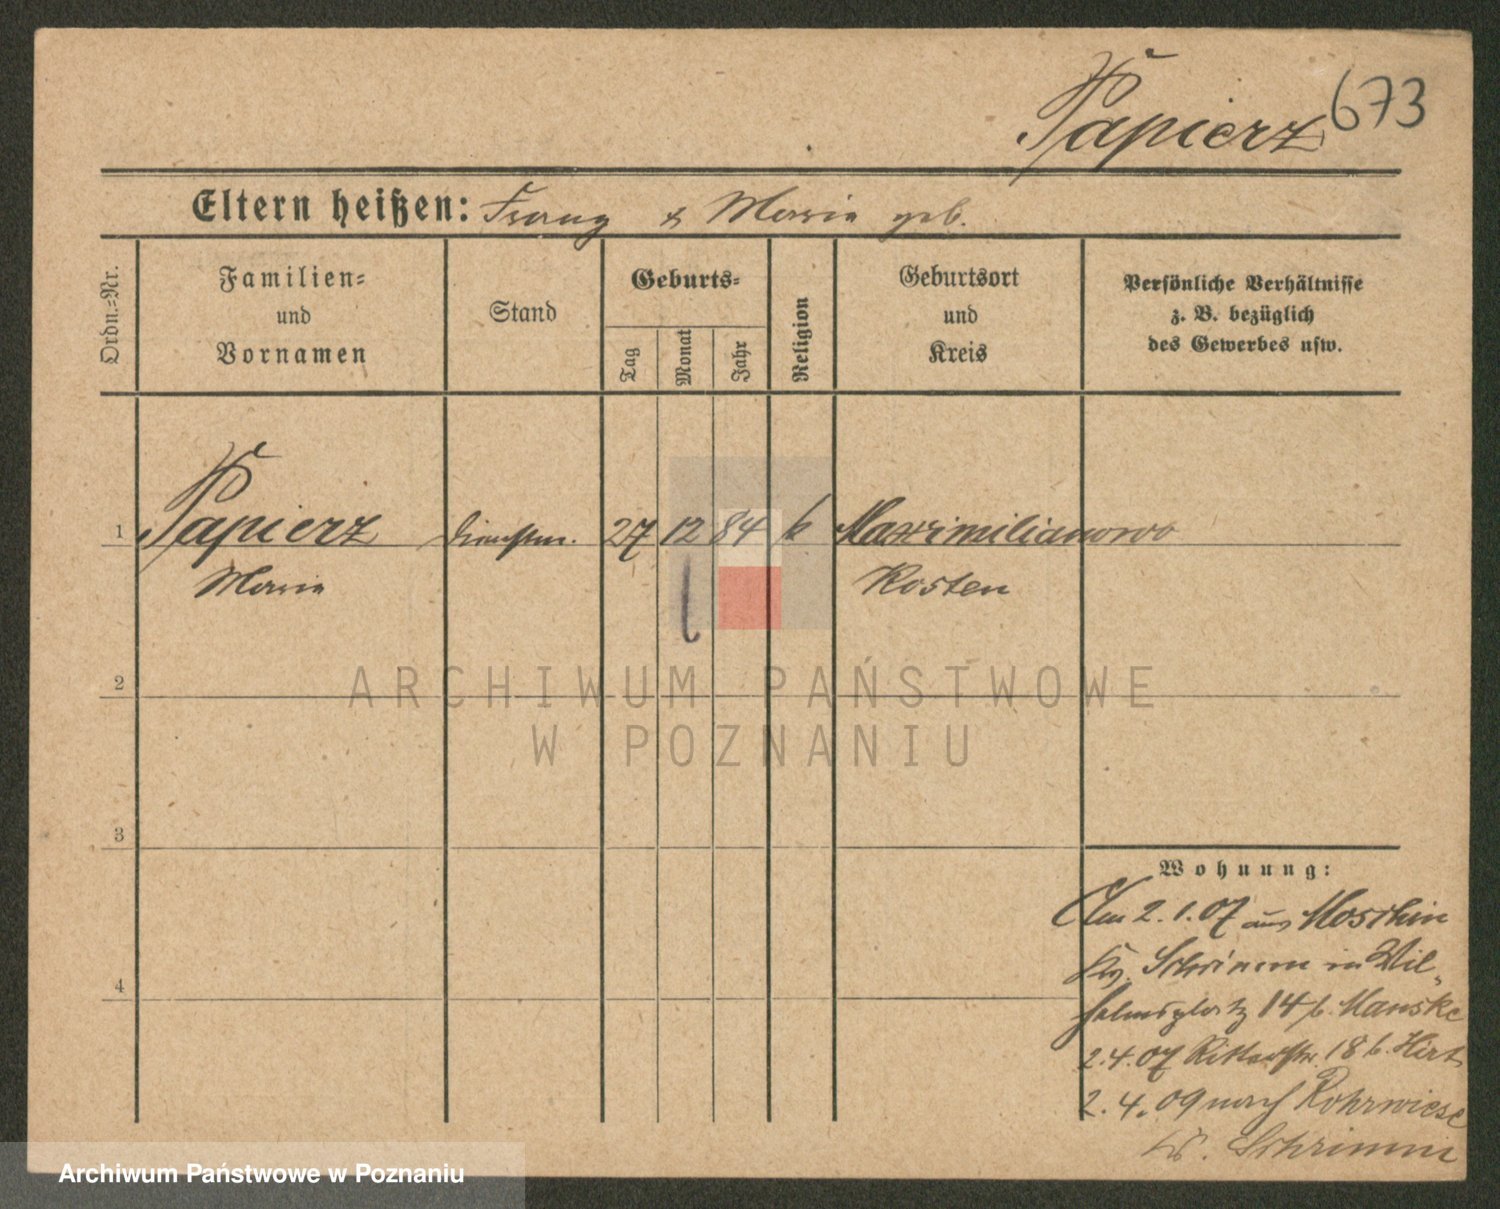 Papierz 673
Eltern heißen: Franz & Maria geb.
Ordn.-Nr.
Familien-
und
Vornamen
Stand
Geburts-
Tag
Monat
Jahr
Religion
Geburtsort
und
Kreis
Persönliche Verhältnisse
z. B. bezüglich
des Gewerbes usw.
1 Papierz Dienstm. 27 12 84 k Maximilianowo
Maria Kosten
2
3
4
Wohnung:
Am 2.1.07 aus Moschin
Kr. Schrimm in Wil-
helmsplatz 14 b. Manske
2.4.07 Ritterstr. 18 b. Hirt
2.4.09 nach Rohrwiese
Kr. Schrimm
ARCHIWUM PAŃSTWOWE
W POZNANIU
Archiwum Państwowe w Poznaniu